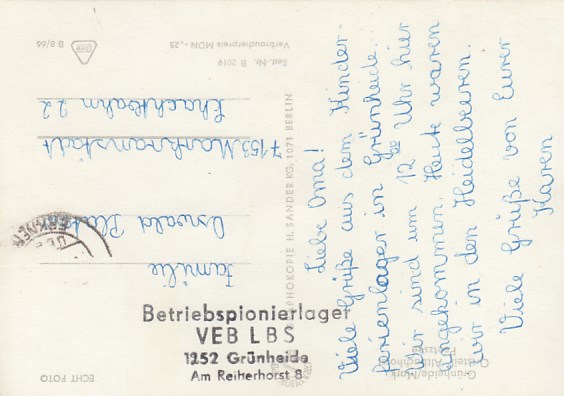 Liebe Oma!
Viele Grüße aus dem Kinder-
ferienlager in Grünheide.
Wir sind um 12⁰⁰ Uhr hier
angekommen. Heute waren
wir in den Heidelbeeren.
Viele Grüße von Eurer
Karen
Familie
Oswald
7153 Markranstädt
22
Betriebspionierlager
VEB LBS
1252 Grünheide
Am Reiherhorst 8
ECHT FOTO
H. SANDER KG, 1071 BERLIN
Best.-Nr. B 2019
Verbraucherpreis MDN -,25
B 8/66
Grünheide/Mark
ERKNER